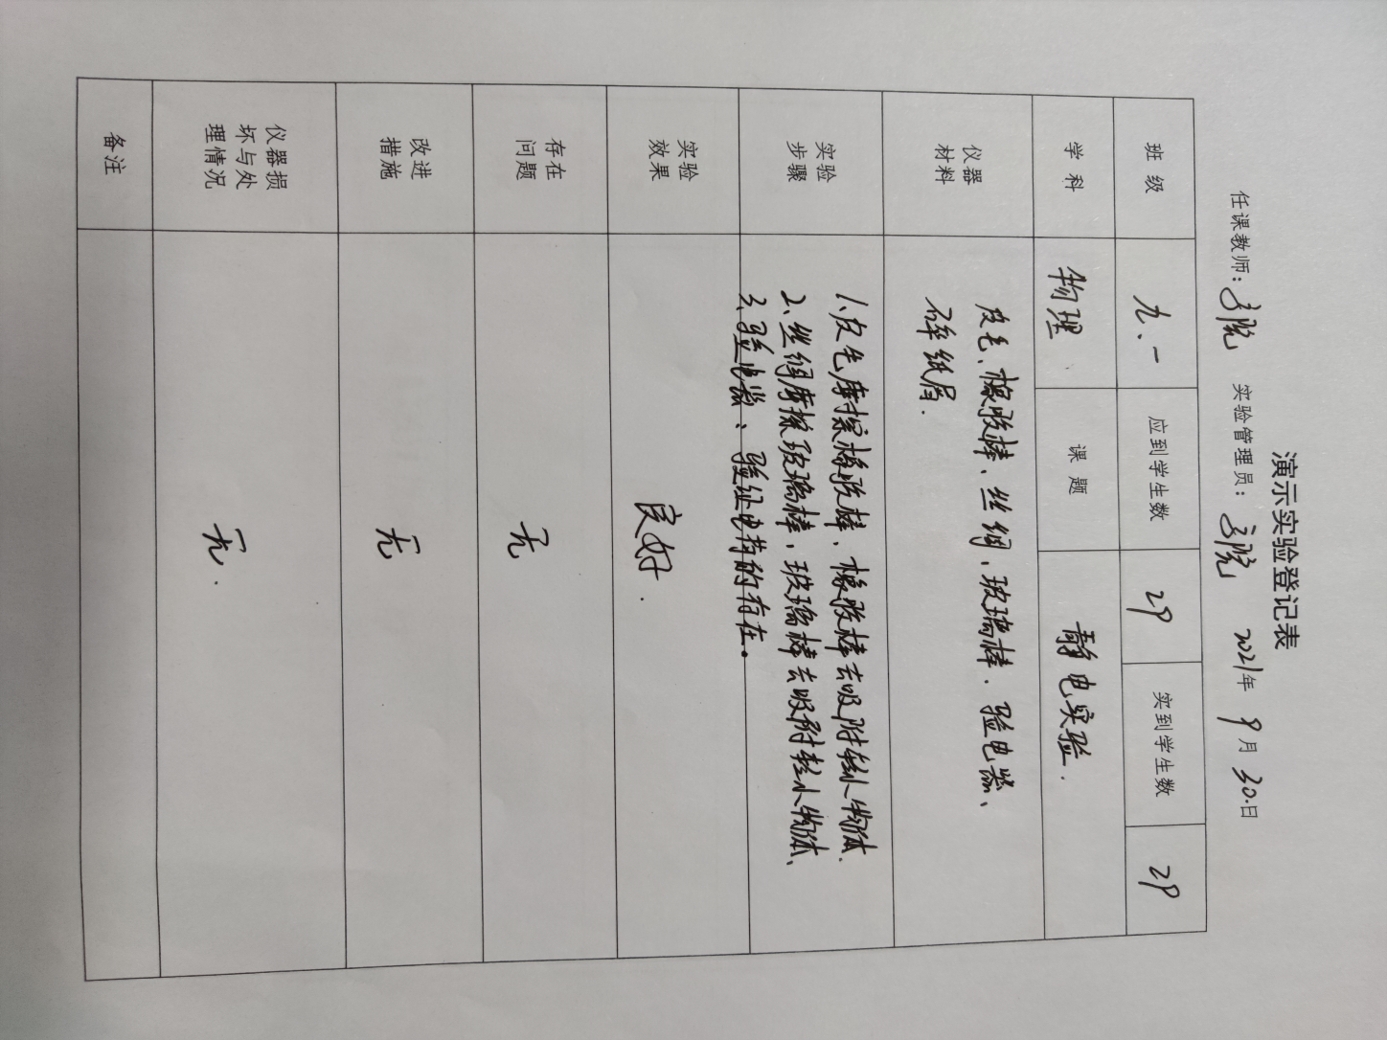 演示实验登记表
任课教师: 实验管理员: 2021年 9月 30日
班级 九.一 应到学生数 29 实到学生数 29
学科 物理 课题 静电实验.
仪器
材料
皮毛、橡胶棒、丝绸、玻璃棒、验电器、
碎纸屑.
实验
步骤
1、皮毛摩擦橡胶棒、橡胶棒去吸附轻小物体.
2、丝绸摩擦玻璃棒,玻璃棒去吸附轻小物体、
3、验电器、验证电荷的存在。
实验
效果
良好.
存在
问题
无
改进
措施
无
仪器损
坏与处
理情况
无.
备注